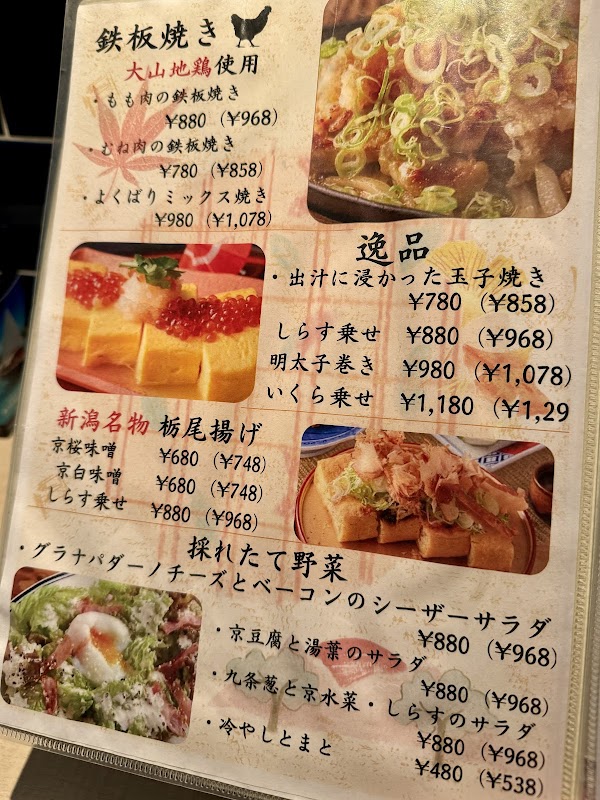 鉄板焼き
大山地鶏使用
・もも肉の鉄板焼き
¥880 (¥968)
・むね肉の鉄板焼き
¥780 (¥858)
・よくばりミックス焼き
¥980 (¥1,078)
逸品
・出汁に浸かった玉子焼き
¥780 (¥858)
しらす乗せ ¥880 (¥968)
明太子巻き ¥980 (¥1,078)
いくら乗せ ¥1,180 (¥1,29
新潟名物 栃尾揚げ
京桜味噌 ¥680 (¥748)
京白味噌 ¥680 (¥748)
しらす乗せ ¥880 (¥968)
採れたて野菜
・グラナパダーノチーズとベーコンのシーザーサラダ
¥880 (¥968)
・京豆腐と湯葉のサラダ
¥880 (¥968)
・九条葱と京水菜・しらすのサラダ
¥880 (¥968)
・冷やしとまと
¥480 (¥538)